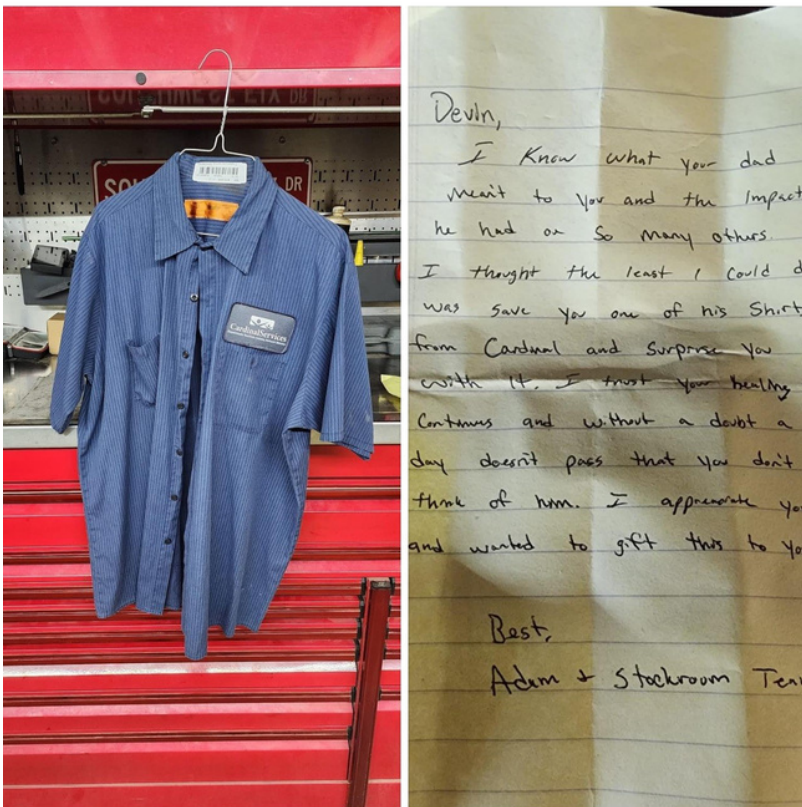 SOU
DR
CardinalServices
Devin,
I Know what your dad
meant to you and the Impact
he had on so many others.
I thought the least I could d
was save you one of his Shirt
from Cardinal and surprise you
with it. I trust your healing
Continues and without a doubt a
day doesn't pass that you don't
think of him. I appreciate yo
and wanted to gift this to yo
Best,
Adam + Stockroom Tea